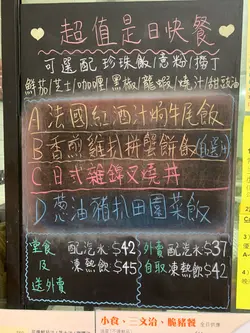 超值是日快餐
可選配珍珠飯/意粉/撈丁
鮮茄/芝士/咖喱/黑椒/龍蝦/燒汁/甜蔥油
A法國紅酒汁焗牛尾飯
B香煎雞扒拼蟹餅飯(自選汁)
C日式雜錦叉燒丼
D葱油豬扒田園菜飯
堂食 配汽水 $42 外賣 配汽水 $37
及 凍熱飲 $45 自取 凍熱飲 $42
送外賣
小食、三文治、脆豬餐